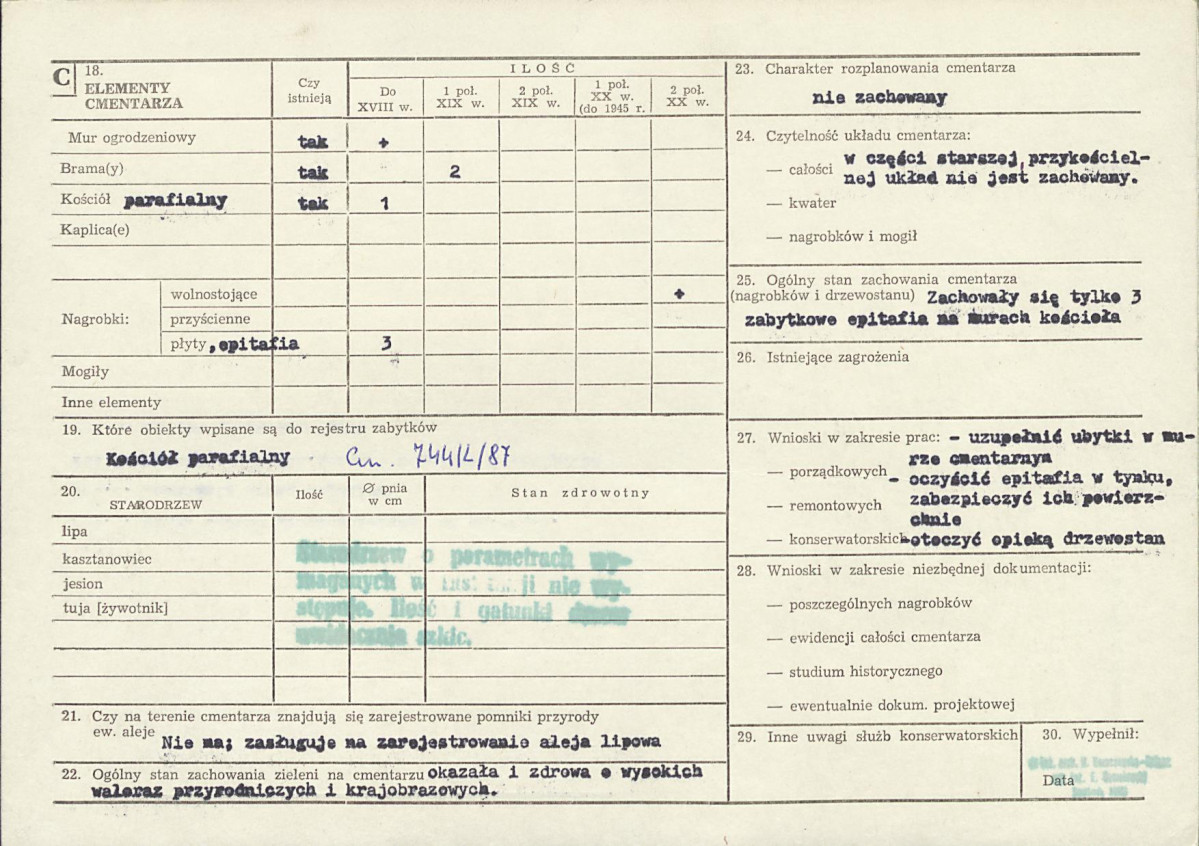 C 18.
ELEMENTY
CMENTARZA
Czy
istnieją
ILOŚĆ
Do
XVIII w.
1 poł.
XIX w.
2 poł.
XIX w.
1 poł.
XX w.
(do 1945 r.
2 poł.
XX w.
Mur ogrodzeniowy tak +
Brama(y) tak 2
Kościół parafialny tak 1
Kaplica(e)
Nagrobki:
wolnostojące +
przyścienne
płyty, epitafia 3
Mogiły
Inne elementy
19. Które obiekty wpisane są do rejestru zabytków
Kościół parafialny 744/L/87
20.
STARODRZEW
Ilość
Ø pnia
w cm
Stan zdrowotny
lipa
kasztanowiec
jesion
tuja [żywotnik]
Starodrzew o parametrach wy-
maganych w instrukcji nie wy-
stępuje. Ilość i gatunki drzew
uwidacznia szkic.
21. Czy na terenie cmentarza znajdują się zarejestrowane pomniki przyrody
ew. aleje
Nie ma; zasługuje na zarejestrowanie aleja lipowa
22. Ogólny stan zachowania zieleni na cmentarzu okazała i zdrowa o wysokich
waloraz przyrodniczych i krajobrazowych.
23. Charakter rozplanowania cmentarza
nie zachowany
24. Czytelność układu cmentarza:
— całości w części starszej, przykościel-
nej układ nie jest zachowany.
— kwater
— nagrobków i mogił
25. Ogólny stan zachowania cmentarza
(nagrobków i drzewostanu) Zachowały się tylko 3
zabytkowe epitafia na murach kościoła
26. Istniejące zagrożenia
27. Wnioski w zakresie prac: - uzupełnić ubytki w mu-
rze cmentarnym
— porządkowych - oczyścić epitafia w tynku,
zabezpieczyć ich powierz-
— remontowych
chnie
— konserwatorskich -otoczyć opieką drzewostan
28. Wnioski w zakresie niezbędnej dokumentacji:
— poszczególnych nagrobków
— ewidencji całości cmentarza
— studium historycznego
— ewentualnie dokum. projektowej
29. Inne uwagi służb konserwatorskich
30. Wypełnił:
Data